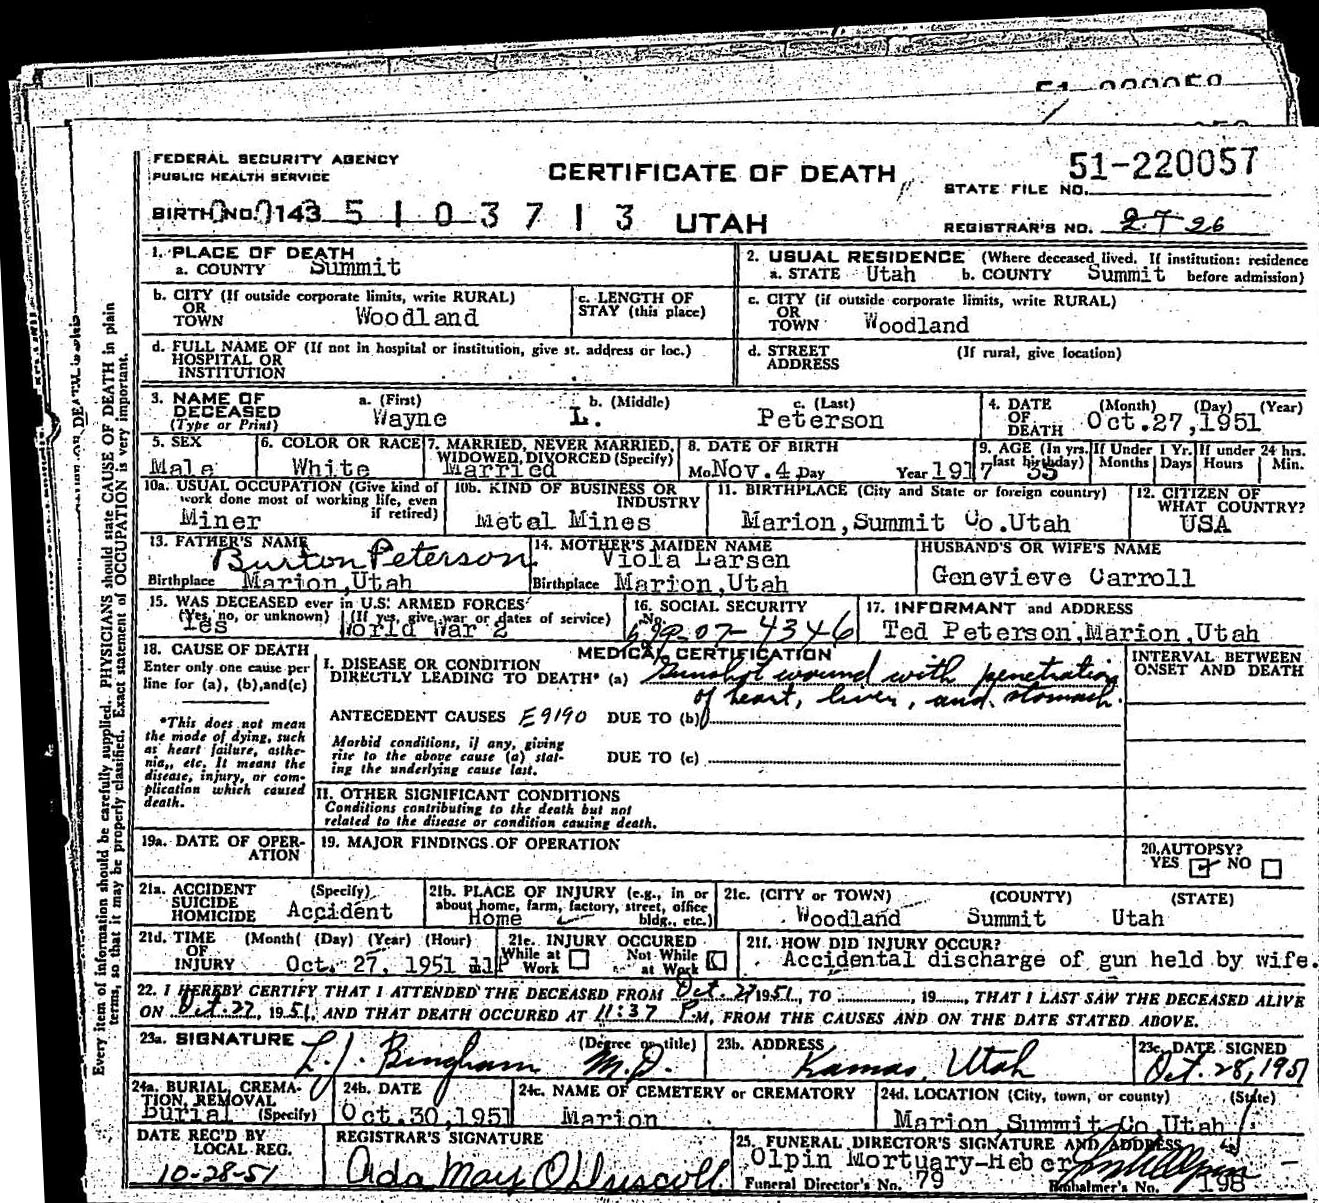 FEDERAL SECURITY AGENCY
PUBLIC HEALTH SERVICE
CERTIFICATE OF DEATH
51-220057
STATE FILE NO.
BIRTH NO. 143 5 1 0 3 7 1 3 UTAH
REGISTRAR'S NO. 26
1. PLACE OF DEATH
a. COUNTY Summit
2. USUAL RESIDENCE (Where deceased lived. If institution: residence
a. STATE Utah b. COUNTY Summit before admission)
b. CITY (If outside corporate limits, write RURAL)
OR
TOWN Woodland
c. LENGTH OF
STAY (this place)
c. CITY (if outside corporate limits, write RURAL)
OR
TOWN Woodland
d. FULL NAME OF (If not in hospital or institution, give st. address or loc.)
HOSPITAL OR
INSTITUTION
d. STREET (If rural, give location)
ADDRESS
3. NAME OF DECEASED (Type or Print)
a. (First) b. (Middle) c. (Last)
Wayne L. Peterson
4. DATE OF DEATH (Month) (Day) (Year)
Oct.27,1951
5. SEX
Male
6. COLOR OR RACE
White
7. MARRIED, NEVER MARRIED,
WIDOWED, DIVORCED (Specify)
Married
8. DATE OF BIRTH
Mo. Nov. 4, Day Year 1917
9. AGE (In yrs. last birthday)
If Under 1 Yr. Months Days
If under 24 hrs. Hours Min.
10a. USUAL OCCUPATION (Give kind of
work done most of working life, even
if retired)
Miner
10b. KIND OF BUSINESS OR
INDUSTRY
Metal Mines
11. BIRTHPLACE (City and State or foreign country)
Marion,Summit Co.Utah
12. CITIZEN OF
WHAT COUNTRY?
USA
13. FATHER'S NAME
Burton Peterson
Birthplace Marion,Utah
14. MOTHER'S MAIDEN NAME
Viola Larsen
Birthplace Marion,Utah
HUSBAND'S OR WIFE'S NAME
Genevieve Carroll
15. WAS DECEASED ever in U.S. ARMED FORCES?
(Yes, no, or unknown) (If yes, give war or dates of service)
Yes World War 2
16. SOCIAL SECURITY
No.
07-4346
17. INFORMANT and ADDRESS
Ted Peterson,Marion,Utah
18. CAUSE OF DEATH
Enter only one cause per
line for (a), (b),and(c)
*This does not mean
the mode of dying, such
as heart failure, asthe-
nia,, etc. It means the
disease, injury, or com-
plication which caused
death.
MEDICAL CERTIFICATION
I. DISEASE OR CONDITION
DIRECTLY LEADING TO DEATH* (a) Gunshot wound with penetration
of heart, liver, and stomach.
ANTECEDENT CAUSES E9190 DUE TO (b)
Morbid conditions, if any, giving
rise to the above cause (a) stat-
ing the underlying cause last.
DUE TO (c)
INTERVAL BETWEEN
ONSET AND DEATH
II. OTHER SIGNIFICANT CONDITIONS
Conditions contributing to the death but not
related to the disease or condition causing death.
19a. DATE OF OPER-
ATION
19. MAJOR FINDINGS OF OPERATION
20. AUTOPSY?
YES NO
21a. ACCIDENT (Specify)
SUICIDE
HOMICIDE Accident
21b. PLACE OF INJURY (e.g., in or
about home, farm, factory, street, office
bldg., etc.)
Home
21c. (CITY or TOWN) (COUNTY) (STATE)
Woodland Summit Utah
21d. TIME (Month( (Day) (Year) (Hour)
OF
INJURY Oct. 27, 1951 11P
21e. INJURY OCCURED
While at Work Not While at Work
21f. HOW DID INJURY OCCUR?
Accidental discharge of gun held by wife.
22. I HEREBY CERTIFY THAT I ATTENDED THE DECEASED FROM Oct. 27 1951, TO , 19 , THAT I LAST SAW THE DECEASED ALIVE
ON Oct. 27, 1951, AND THAT DEATH OCCURED AT 11:37 P.M, FROM THE CAUSES AND ON THE DATE STATED ABOVE.
23a. SIGNATURE (Degree or title)
L.J. Bingham M.D.
23b. ADDRESS
Kamas, Utah
23c. DATE SIGNED
Oct. 28, 1951
24a. BURIAL, CREMA-
TION, REMOVAL
Burial (Specify)
24b. DATE
Oct.30,1951
24c. NAME OF CEMETERY or CREMATORY
Marion
24d. LOCATION (City, town, or county) (State)
Marion,Summit Co,Utah
DATE REC'D BY
LOCAL REG.
10-28-51
REGISTRAR'S SIGNATURE
Ada May O'Driscoll
25. FUNERAL DIRECTOR'S SIGNATURE AND ADDRESS
Olpin Mortuary-Heber
Funeral Director's No. 79
Embalmer's No. 198
Every item of information should be carefully supplied. PHYSICIANS should state CAUSE OF DEATH in plain
terms, so that it may be properly classified. Exact statement of OCCUPATION is very important.